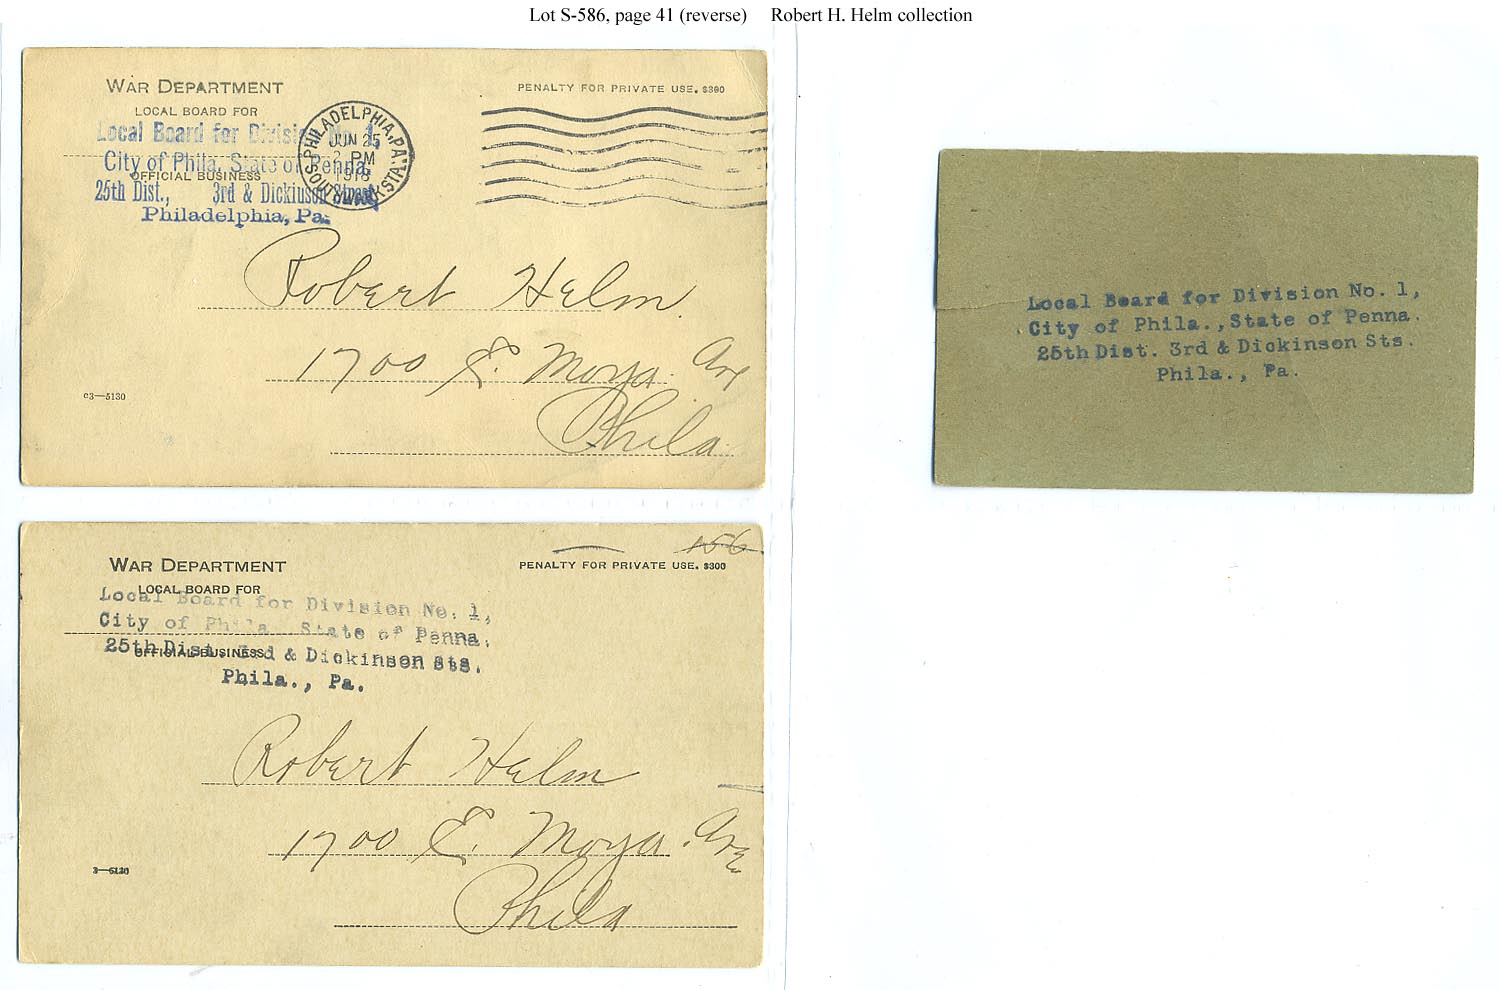 Lot S-586, page 41 (reverse) Robert H. Helm collection
WAR DEPARTMENT
PENALTY FOR PRIVATE USE, $300
LOCAL BOARD FOR
Local Board for Division No. 1,
City of Phila. State of Penna.
OFFICIAL BUSINESS
25th Dist., 3rd & Dickinson Street
Philadelphia, Pa.
PHILADELPHIA, PA.
JUN 25
2 PM
1918
SOUTHWARK STA.
Robert Helm.
1700 E. Moya. Ave
Phila
c3—5130
WAR DEPARTMENT
156
PENALTY FOR PRIVATE USE. $300
LOCAL BOARD FOR
Local Board for Division No. 1,
City of Phila. State of Penna.
OFFICIAL BUSINESS
25th Dist. 3rd & Dickinson Sts.
Phila., Pa.
Robert Helm
1700 E. Moya. Ave
Phila
3—5130
Local Board for Division No. 1,
City of Phila., State of Penna.
25th Dist. 3rd & Dickinson Sts.
Phila., Pa.